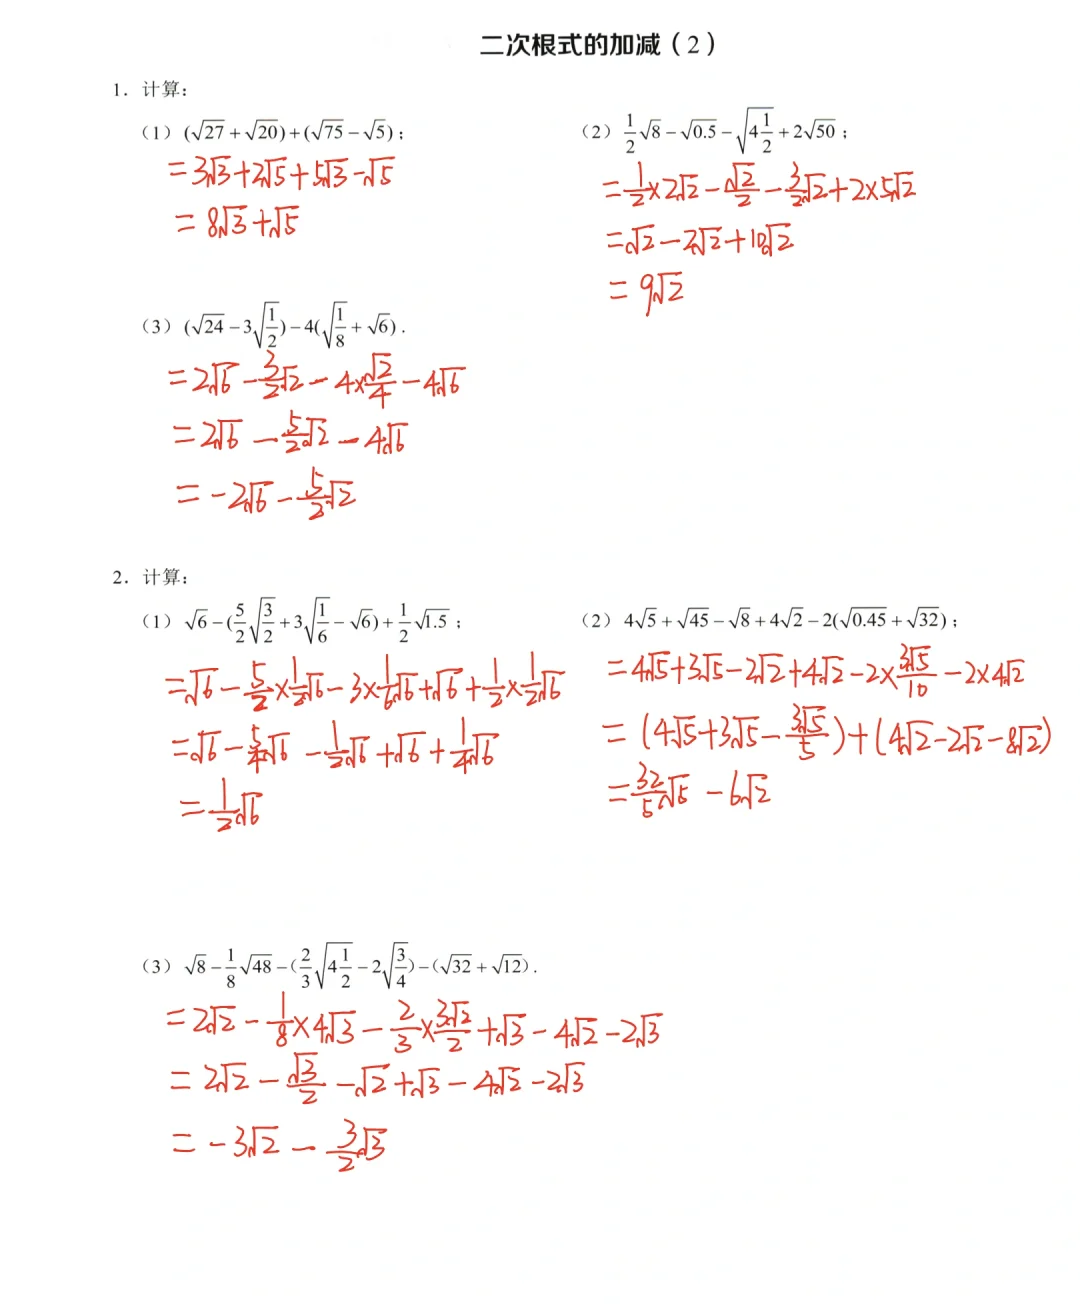 二次根式的加减（2）
1．计算：
（1）(√27+√20)+(√75−√5)；
=3√3+2√5+5√3−√5
=8√3+√5
（2）1/2√8−√0.5−√(4 1/2)+2√50；
=1/2×2√2−√2/2−3/2√2+2×5√2
=√2−2√2+10√2
=9√2
（3）(√24−3√(1/2))−4(√(1/8)+√6)．
=2√6−3/2√2−4×√2/4−4√6
=2√6−5/2√2−4√6
=−2√6−5/2√2
2．计算：
（1）√6−(5/2√(3/2)+3√(1/6)−√6)+1/2√1.5；
=√6−5/2×1/2√6−3×1/6√6+√6+1/2×1/2√6
=√6−5/4√6−1/2√6+√6+1/4√6
=1/2√6
（2）4√5+√45−√8+4√2−2(√0.45+√32)；
=4√5+3√5−2√2+4√2−2×3√5/10−2×4√2
=(4√5+3√5−3√5/5)+(4√2−2√2−8√2)
=32/5√5−6√2
（3）√8−1/8√48−(2/3√(4 1/2)−2√(3/4))−(√32+√12)．
=2√2−1/8×4√3−2/3×3√2/2+√3−4√2−2√3
=2√2−√3/2−√2+√3−4√2−2√3
=−3√2−3/2√3